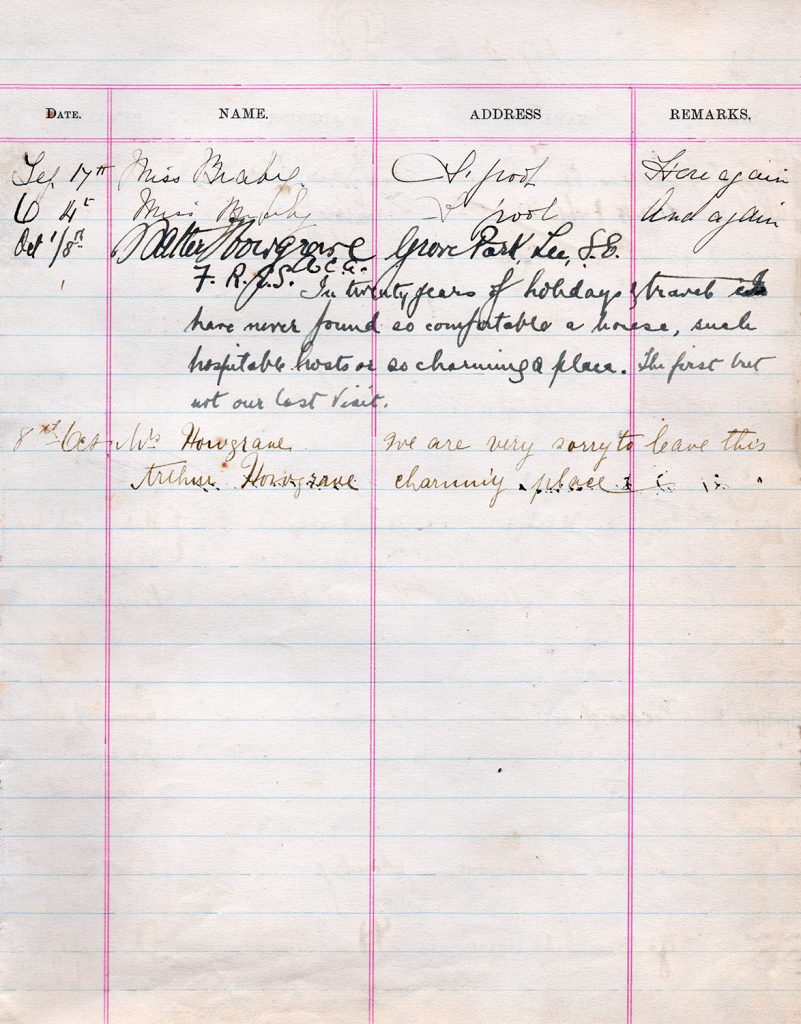 DATE. NAME. ADDRESS REMARKS.
17th Miss L'pool Here again
4th Miss L'pool And again
Oct 1/8th Walter Howgrave Grove Park Lee, S.E.
F. R. G. S.
In twenty years of holidays & travel
have never found so comfortable a house, such
hospitable hosts or so charming a place. The first but
not our last visit.
8th Oct Mrs Howgrave We are very sorry to leave this
Arthur Howgrave charming place